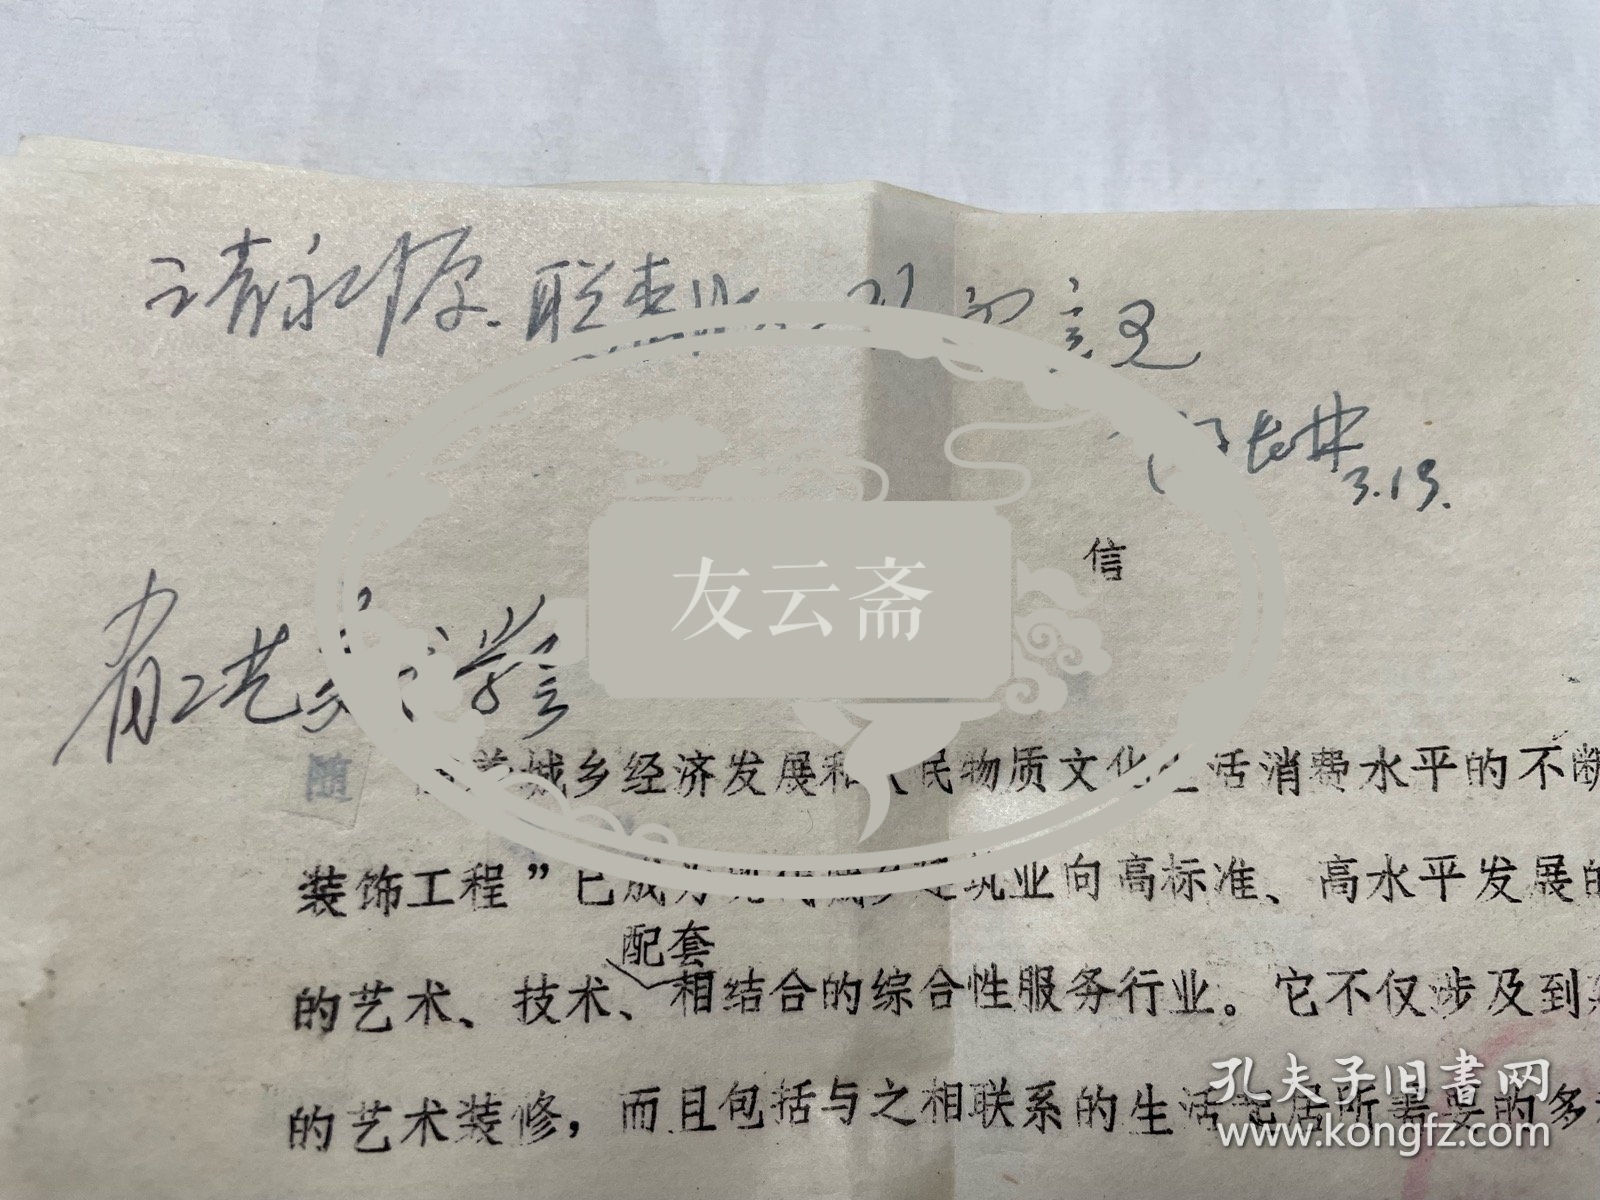 请永源、联
意见
长林
3.19.
信
省工艺美术学会
友云斋
城乡经济发展和人民物质文化生活消费水平的不断
装饰工程”已成为现代城乡建筑业向高标准、高水平发展的
配套
的艺术、技术、相结合的综合性服务行业。它不仅涉及到
的艺术装修，而且包括与之相联系的生活起居所需要的多
孔夫子旧書网
www.kongfz.com